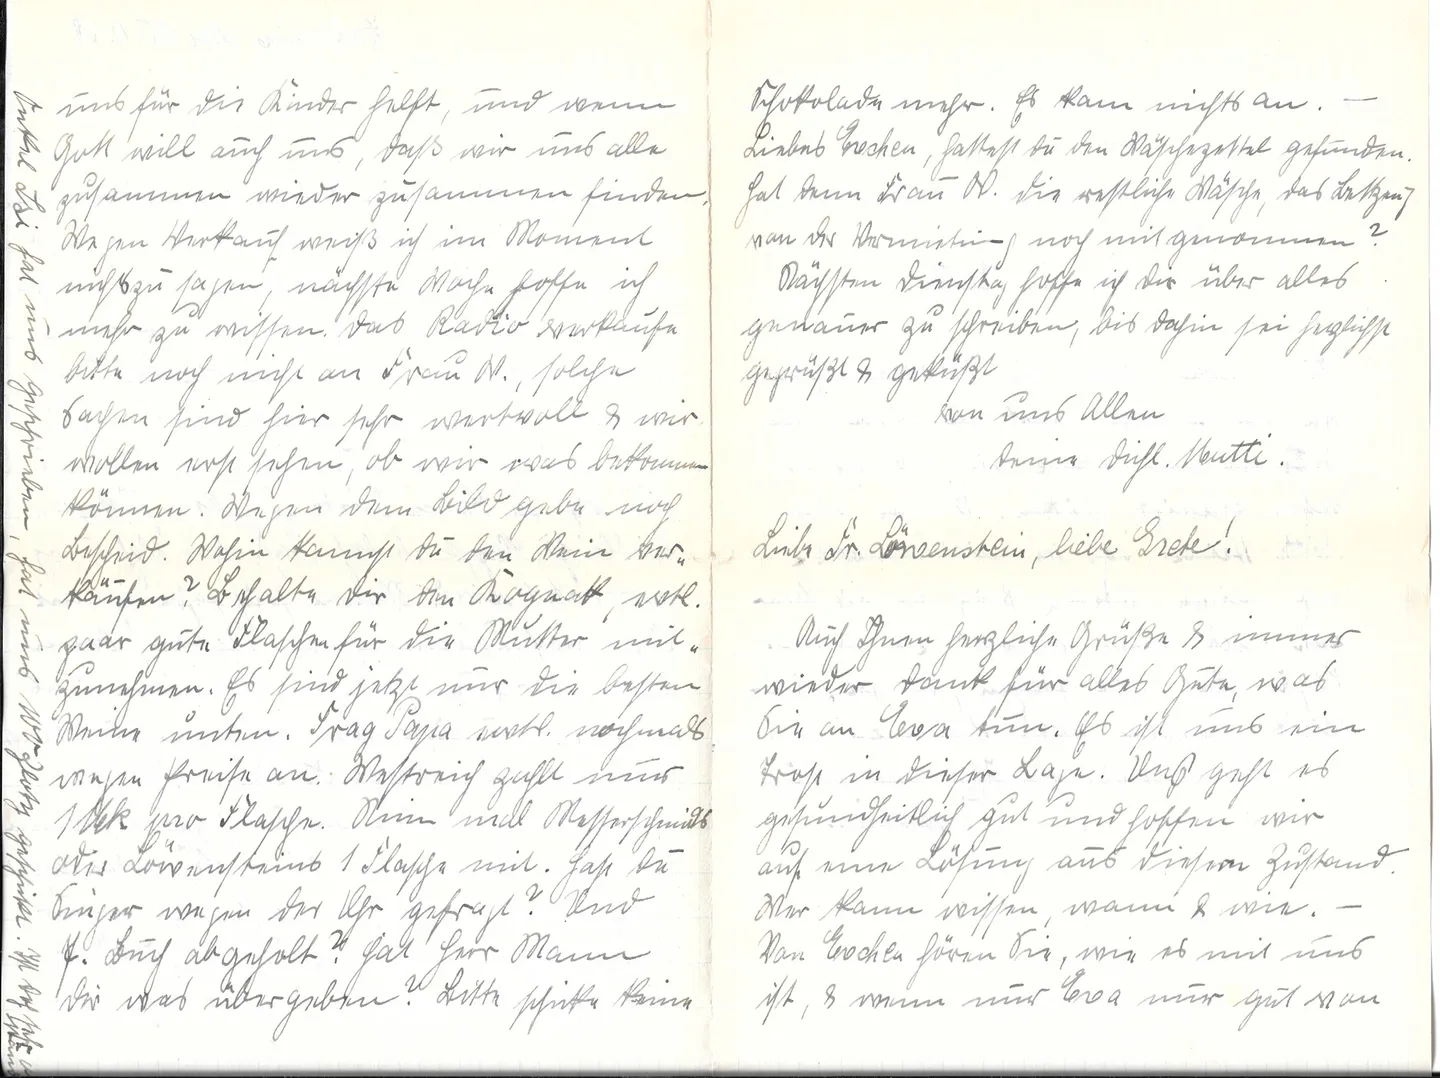 uns für die Kinder hilft, und wenn
Gott will auch uns, daß wir uns alle
zusammen wieder zusammen finden.
Wegen Verkauf weiß ich im Moment
nichts zu sagen, nächste Woche hoffe ich
mehr zu wissen. Das Radio verkaufe
bitte noch nicht an Frau W., solche
Sachen sind hier sehr wertvoll & wir
wollen erst sehen, ob wir was bekommen
können. Wegen dem Bild gebe noch
Bescheid. Wohin kannst du den Wein ver-
kaufen? Behalte dir den Kognak, evtl.
paar gute Flaschen für die Mutter mit-
zunehmen. Es sind jetzt nur die besten
Weine unten. Frag Papa evtl. nochmals
wegen Preise an. Westreich zahlt nur
1 Mk pro Flasche. Nimm mal Messerschmids
oder Löwensteins 1 Flasche mit. Hast du
Singer wegen der Uhr gefragt? Und
J. Buch abgeholt? Hat Herr Mann
dir was übergeben? Bitte schicke keine
Schokolade mehr. Es kam nichts an. —
Liebes Evchen, hattest du den Wäschezettel gefunden.
Hat denn Frau W. die restliche Wäsche, das Bettzeug
von der Vermietung noch mitgenommen?
Nächsten Dienstag hoffe ich dir über alles
genauer zu schreiben, bis dahin sei herzlichst
gegrüßt & geküßt
von uns Allen
deine dichl. Mutti.
Liebe Fr. Löwenstein, liebe Grete!
Auch Ihnen herzliche Grüße & immer
wieder Dank für alles Gute, was
Sie an Eva tun. Es ist uns ein
Trost in dieser Lage. Uns geht es
gesundheitlich gut und hoffen wir
auf eine Lösung aus diesem Zustand.
Wer kann wissen, wann & wie. —
Von Evchen hören Sie, wie es mit uns
ist, & wenn nur Eva nur gut von
Onkel hat uns geschrieben, hat uns 100 Zloty geschickt. Ist das sehr